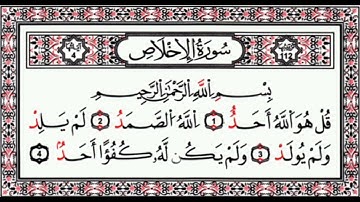 سُورَةُ الْإِخْلَاصِ
بِسْمِ اللَّهِ الرَّحْمَٰنِ الرَّحِيمِ
قُلْ هُوَ اللَّهُ أَحَدٌ 1 اللَّهُ الصَّمَدُ 2 لَمْ يَلِدْ
وَلَمْ يُولَدْ 3 وَلَمْ يَكُن لَّهُ كُفُوًا أَحَدٌ 4